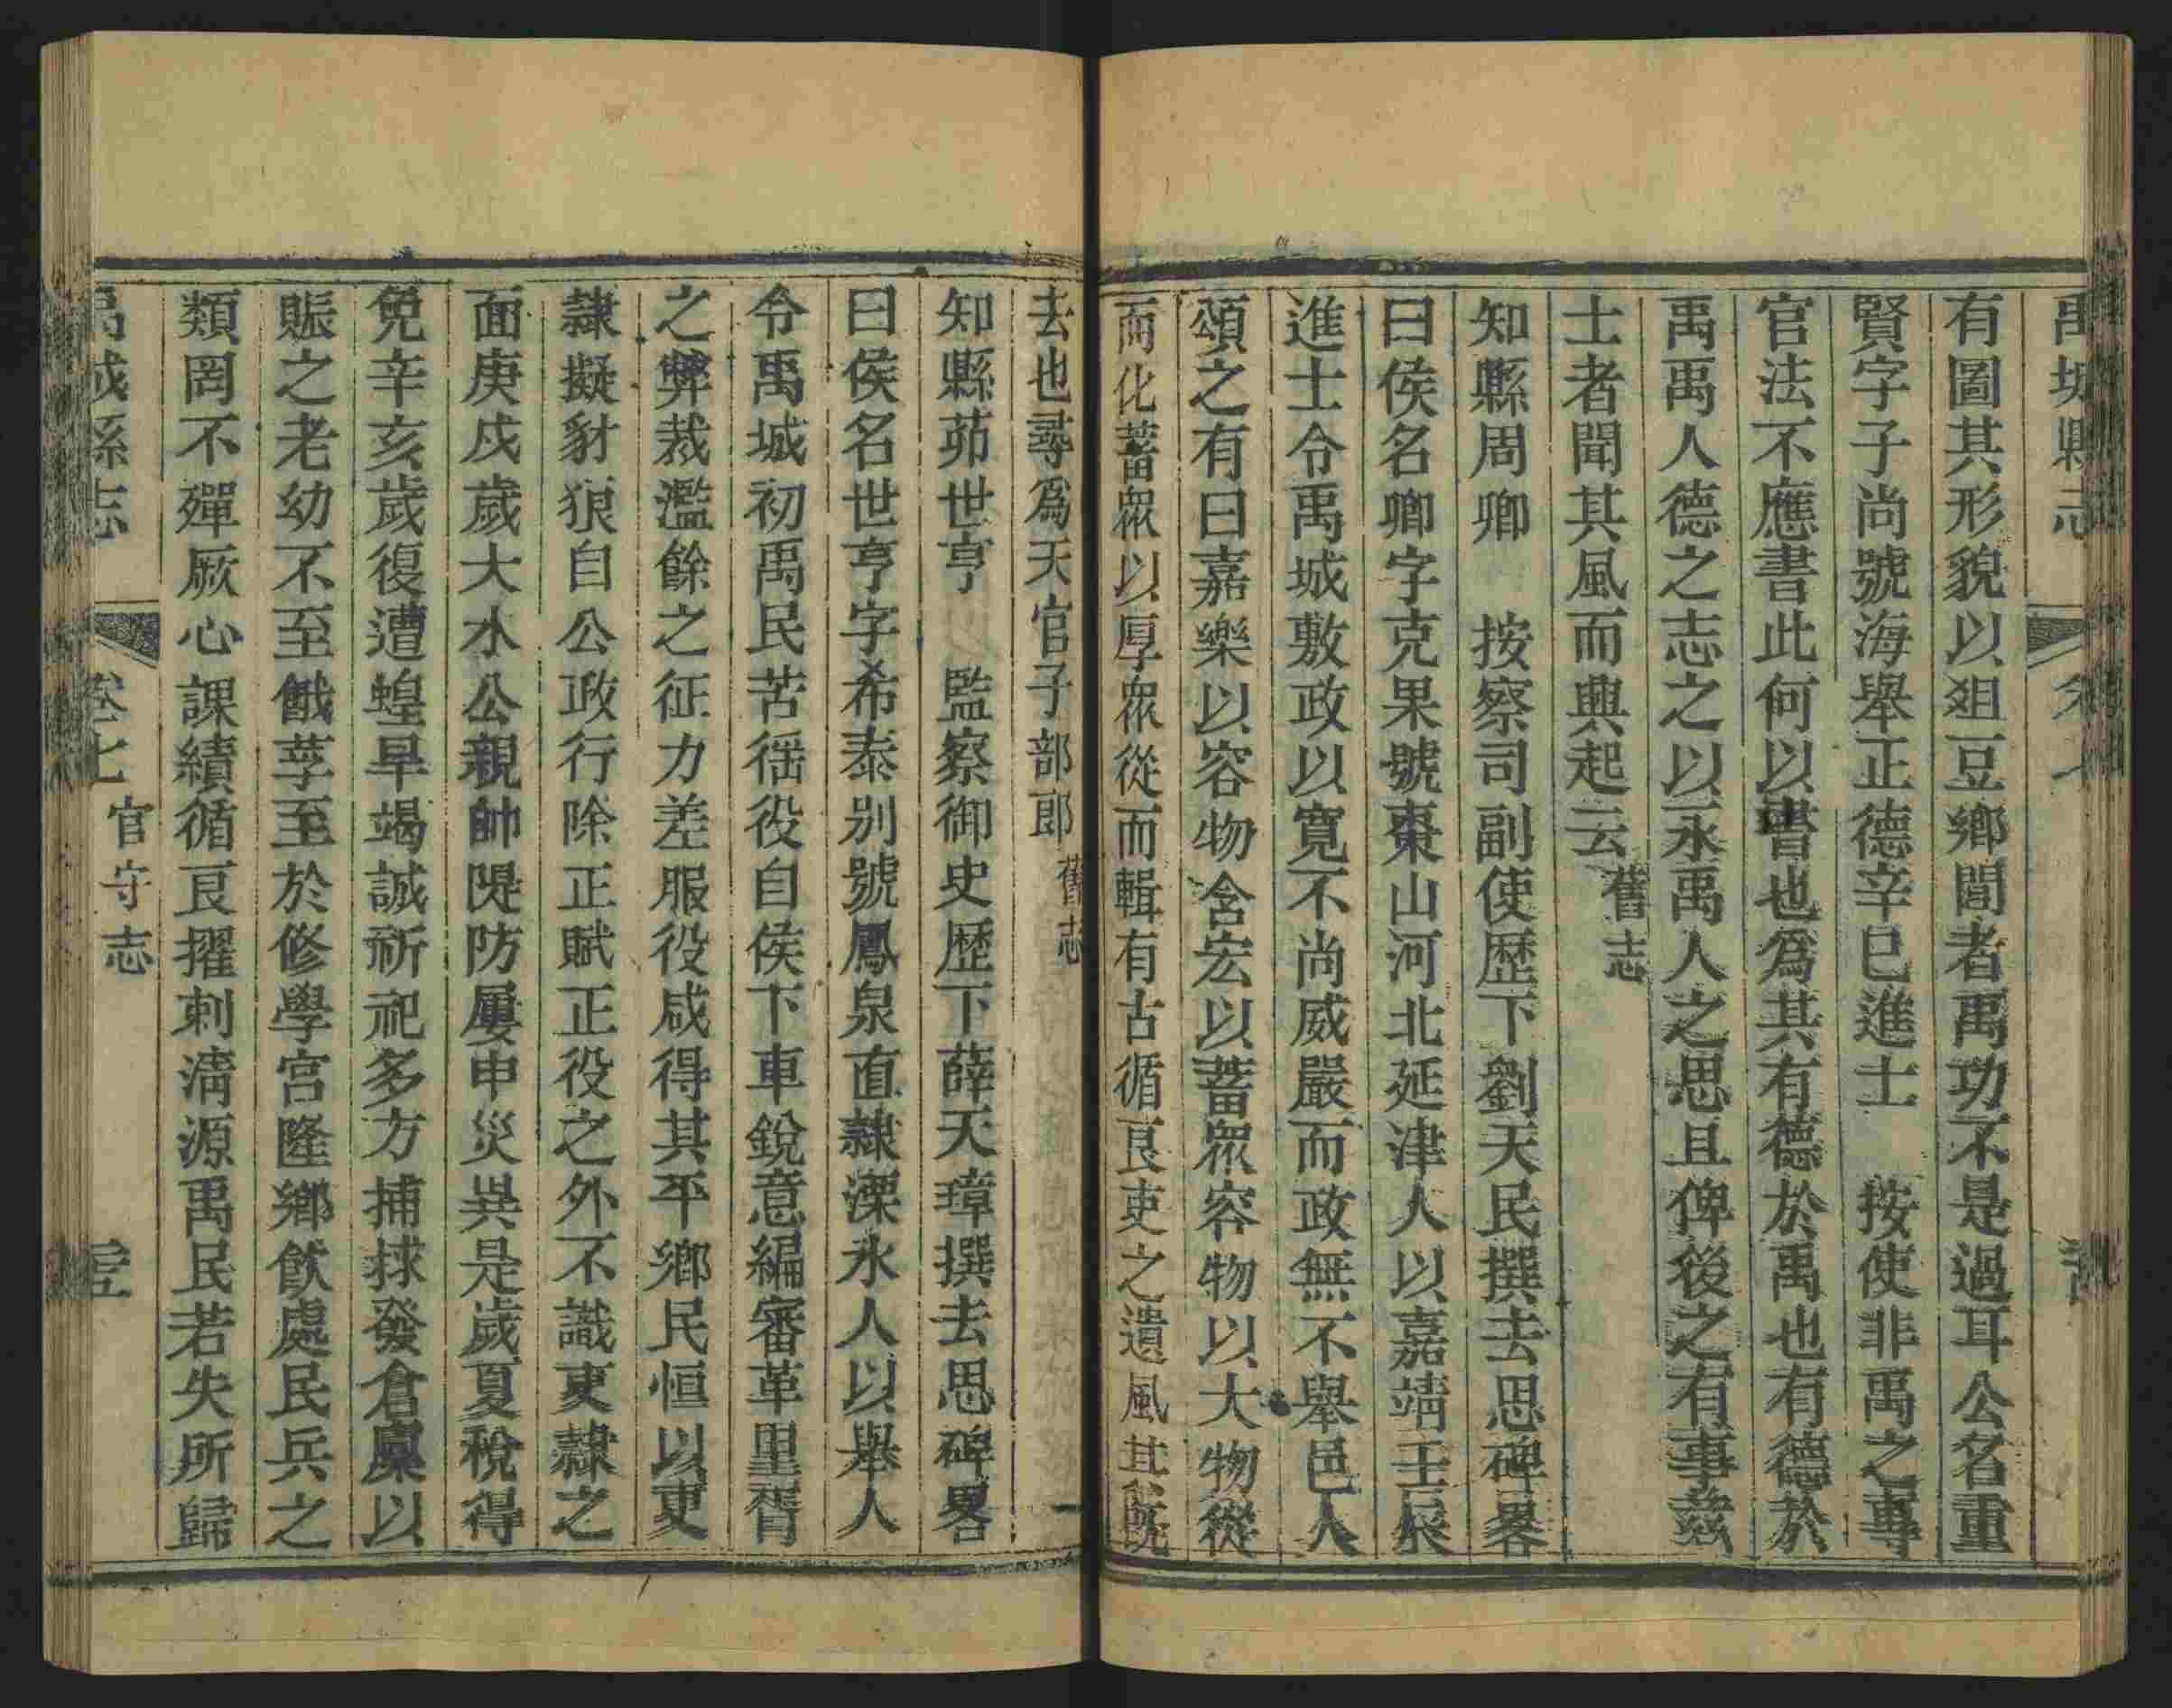 禹城縣志
有圖其形貌以俎豆鄉閭者禹功不是過耳公名重
賢字子尚號海舉正德辛巳進士　按使非禹之專
官法不應書此何以書也爲其有德於禹也有德於
禹禹人德之志之以永禹人之思且俾後之有事茲
土者聞其風而興起云舊志
知縣周卿　按察司副使歷下劉天民撰去思碑畧
曰侯名卿字克果號棗山河北延津人以嘉靖壬辰
進士令禹城敷政以寬不尚威嚴而政無不舉邑人
頌之有曰嘉樂以容物含宏以蓄眾容物以大物從
而化蓄眾以厚眾從而輯有古循良吏之遺風其既
去也尋爲天官子部郎舊志
知縣茆世亨　監察御史歷下薛天璋撰去思碑畧
曰侯名世亨字希泰别號鳳泉直隸溧水人以舉人
令禹城初禹民苦徭役自侯下車銳意編審革里胥
之弊裁濫餘之征力差服役咸得其平鄉民恒以吏
隸擬豺狼自公政行除正賦正役之外不識吏隸之
面庚戌歲大水公親帥隄防屢申災異是歲夏稅得
免辛亥歲復遭蝗旱竭誠祈祀多方捕捄發倉廩以
賑之老幼不至餓莩至於修學宮隆鄉飲處民兵之
類罔不殫厥心課績循良擢刺清源禹民若失所歸
禹城縣志　卷七　官守志